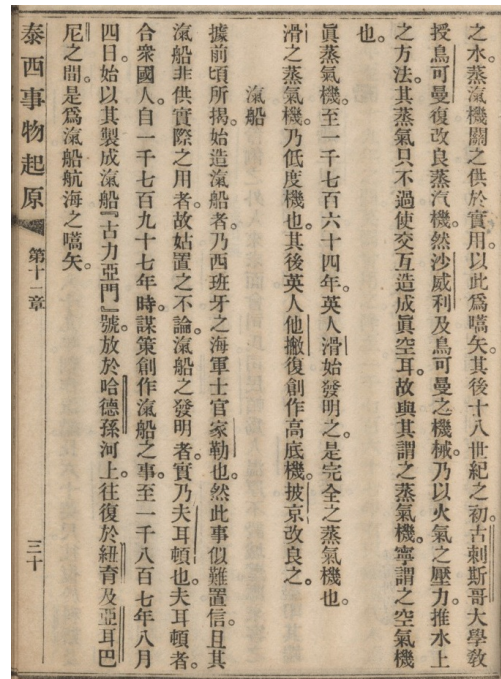 之水。蒸滊機關之供於實用。以此爲嚆矢。其後十八世紀之初。古刺斯哥大學敎
授鳥可曼復改良蒸汽機。然沙威利及鳥可曼之機械。乃以火氣之壓力推水上
之方法。其蒸氣只不過使交互造成眞空耳。故與其謂之蒸氣機。寧謂之空氣機
也。
眞蒸氣機。至一千七百六十四年。英人滑始發明之。是完全之蒸氣機也。
滑之蒸氣機。乃低度機也。其後英人他撇復創作高底機。披京改良之。
滊船
據前頃所揭。始造滊船者。乃西班牙之海軍士官家勒也。然此事似難置信。且其
滊船非供實際之用者。故姑置之不論。滊船之發明者。實乃夫耳頓也。夫耳頓者。
合衆國人。自一千七百九十七年時。謀策創作滊船之事。至一千八百七年八月
四日。始以其製成滊船『古力亞門』號。放於哈德孫河上。往復於紐育及亞耳巴
尼之間。是爲滊船航海之嚆矢。
泰西事物起原 第十一章 三十